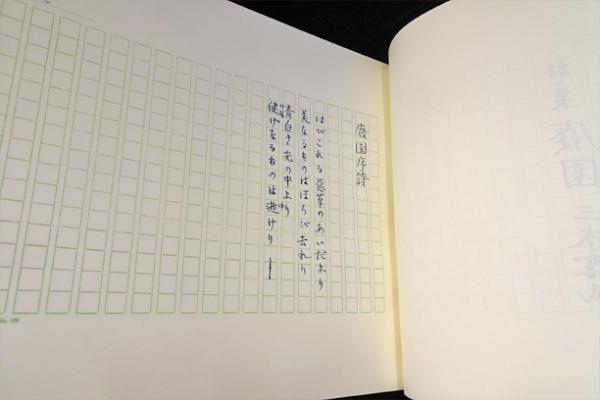 詩集 廃園 三木
廃園序詩
はびこれる蔓草のあいだより
美なるものはほろび去れり
青白き光の中より
健げなるものは逝けり